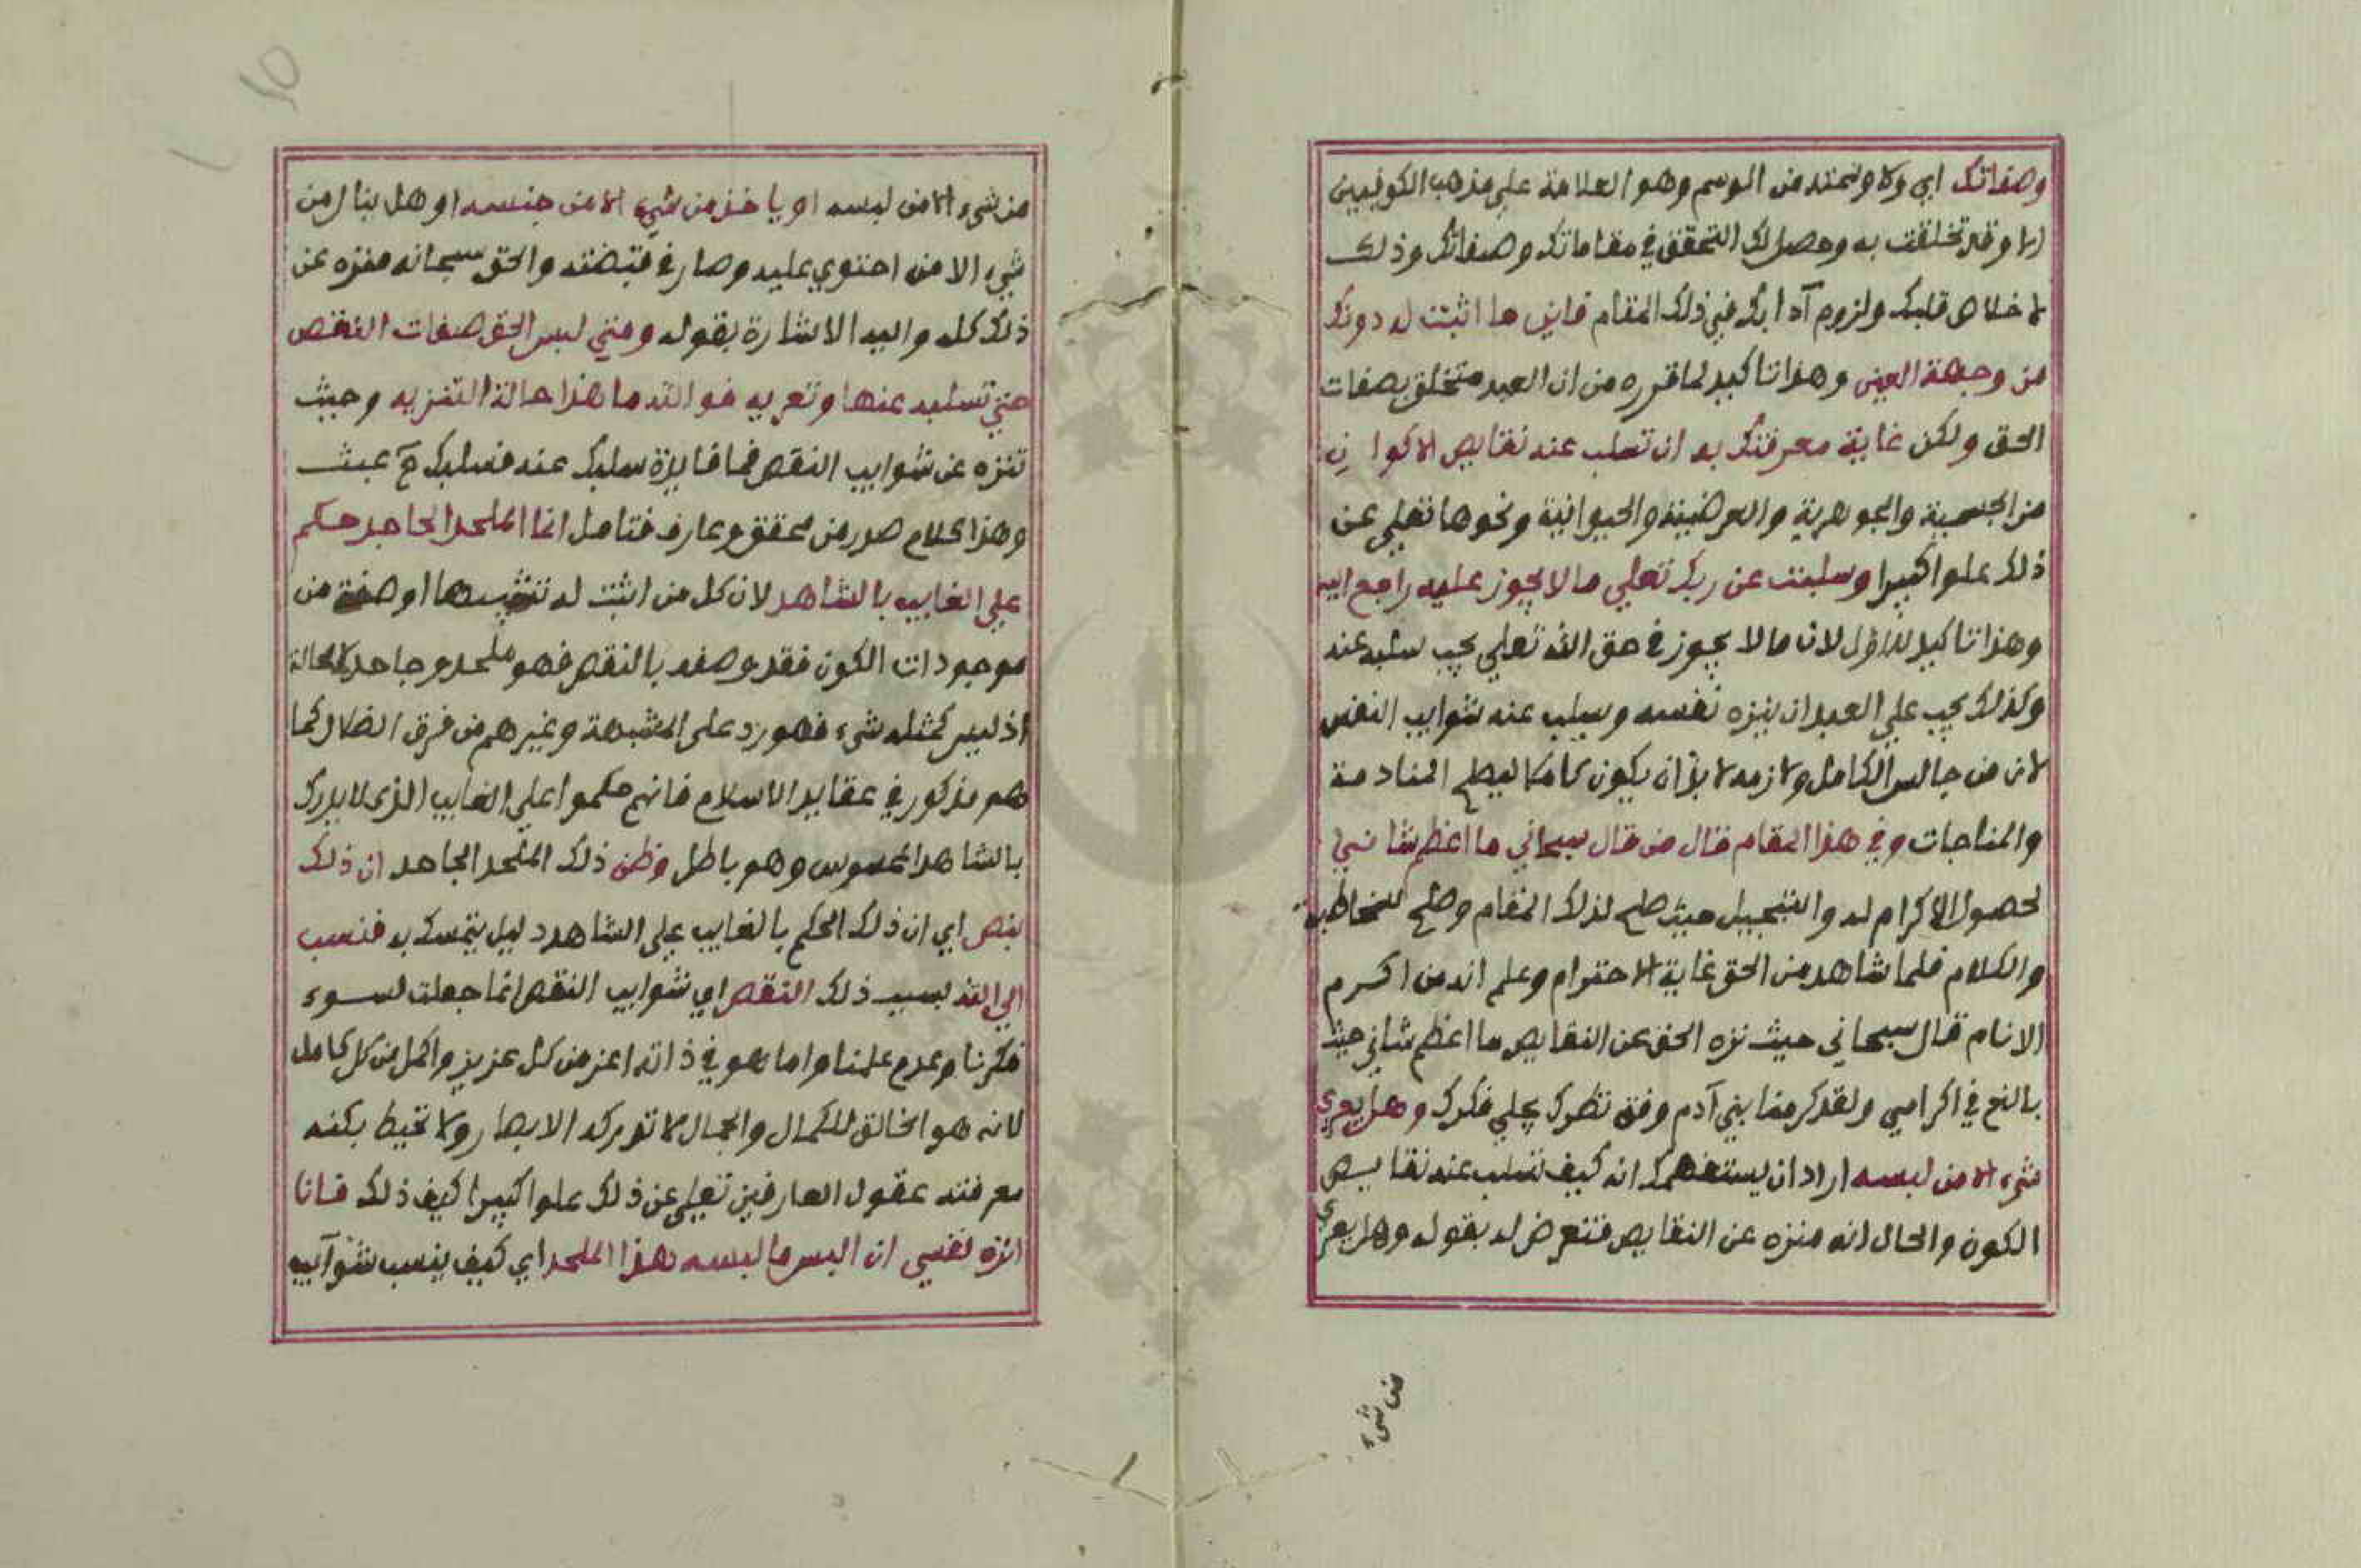 وصفاتك اي ولا وسمته من الوسم وهو العلامة علي مذهب الكوفيين
الا وقد تخلقت به وحصل لك التحقق في مقاماتك وصفاتك وذلك
لاخلاص قلبك ولزوم آدابك في ذلك المقام فاين ما اثبت له دونك
من وجهة العين وهذا تاكيد لما قرره من ان العبد متخلق بصفات
الحق ولكن غاية معرفتك به ان تسلب عنه نقايص الاكوان
من الجسمية والجوهرية والعرضية والحيوانية ونحوها تعلي عن
ذلك علوا كبيرا وسلبت عن ربك تعلي ما لا يجوز عليه راجع اليه
وهذا تاكيد للاول لان ما لا يجوز في حق الله تعلي يجب سلبه عنه
وكذلك يجب علي العبد ان ينزه نفسه ويسلب عنه شوايب النفس
لان من جالس الكامل ولازمه لا بد ان يكون كاملا ليصلح المنادمة
والمناجات وفي هذا المقام قال من قال سبحاني ما اعظم شاني
لحصول الاكرام له والتبجيل حيث صلح لذلك المقام وصلح للمخاطبة
والكلام فلما شاهد من الحق غاية الاحترام وعلم انه من اكرم
الانام قال سبحاني حيث نزه الحق عن النقايص ما اعظم شاني حيث
بالغ في اكرامي ولقد كرمنا بني آدم وفق نظرك بجلي فكرك وهل يعري
شيء الا من لبسه اراد ان يستفهمك انه كيف تسلب عنه نقايص
الكون والحال انه منزه عن النقايص فتعرض له بقوله وهل يعري
من شيء
من شيء الا من لبسه او ياخذ من شيء الا من جنسه او هل ينال من
شيء الا من احتوي عليه وصار في قبضته والحق سبحانه منزه عن
ذلك كله واليه الاشارة بقوله ومتي لبس الحق صفات النقص
حتي تسلبه عنها وتعريه فوالله ما هذا حالة التنزيه وحيث
تنزه عن شوايب النقص فما فايدة سلبك عنه فسلبك ح عبث
وهذا كلام صدر من محقق وعارف فتامل انما الملحد الجاحد حكم
علي الغايب بالشاهد لان كل من اثبت له تشبيها او صفة من
موجودات الكون فقد وصفه بالنقص فهو ملحد وجاحد لا محالة
اذ ليس كمثله شيء فهو رد علي المشبهة وغيرهم من فرق الضلال كما
هم مذكور في عقايد الاسلام فانهم حكموا علي الغايب الذي لا يدرك
بالشاهد المحسوس وهو باطل وظن ذلك الملحد الجاحد ان ذلك
نص اي ان ذلك الحكم بالغايب علي الشاهد دليل يتمسك به فنسب
الي الله بسبب ذلك النقص اي شوايب النقص انما جعلت لسوء
فكرنا وعدم علمنا واما هو في ذاته اعز من كل عزيز واكمل من كل كامل
لانه هو الخالق للكمال والجمال لا تدركه الابصار ولا تحيط بكنه
معرفته عقول العارفين تعلي عن ذلك علوا كبيرا كيف ذلك فانا
انزه نفسي ان البس ما لبسه هذا الملحد اي كيف ينسب شوآيب